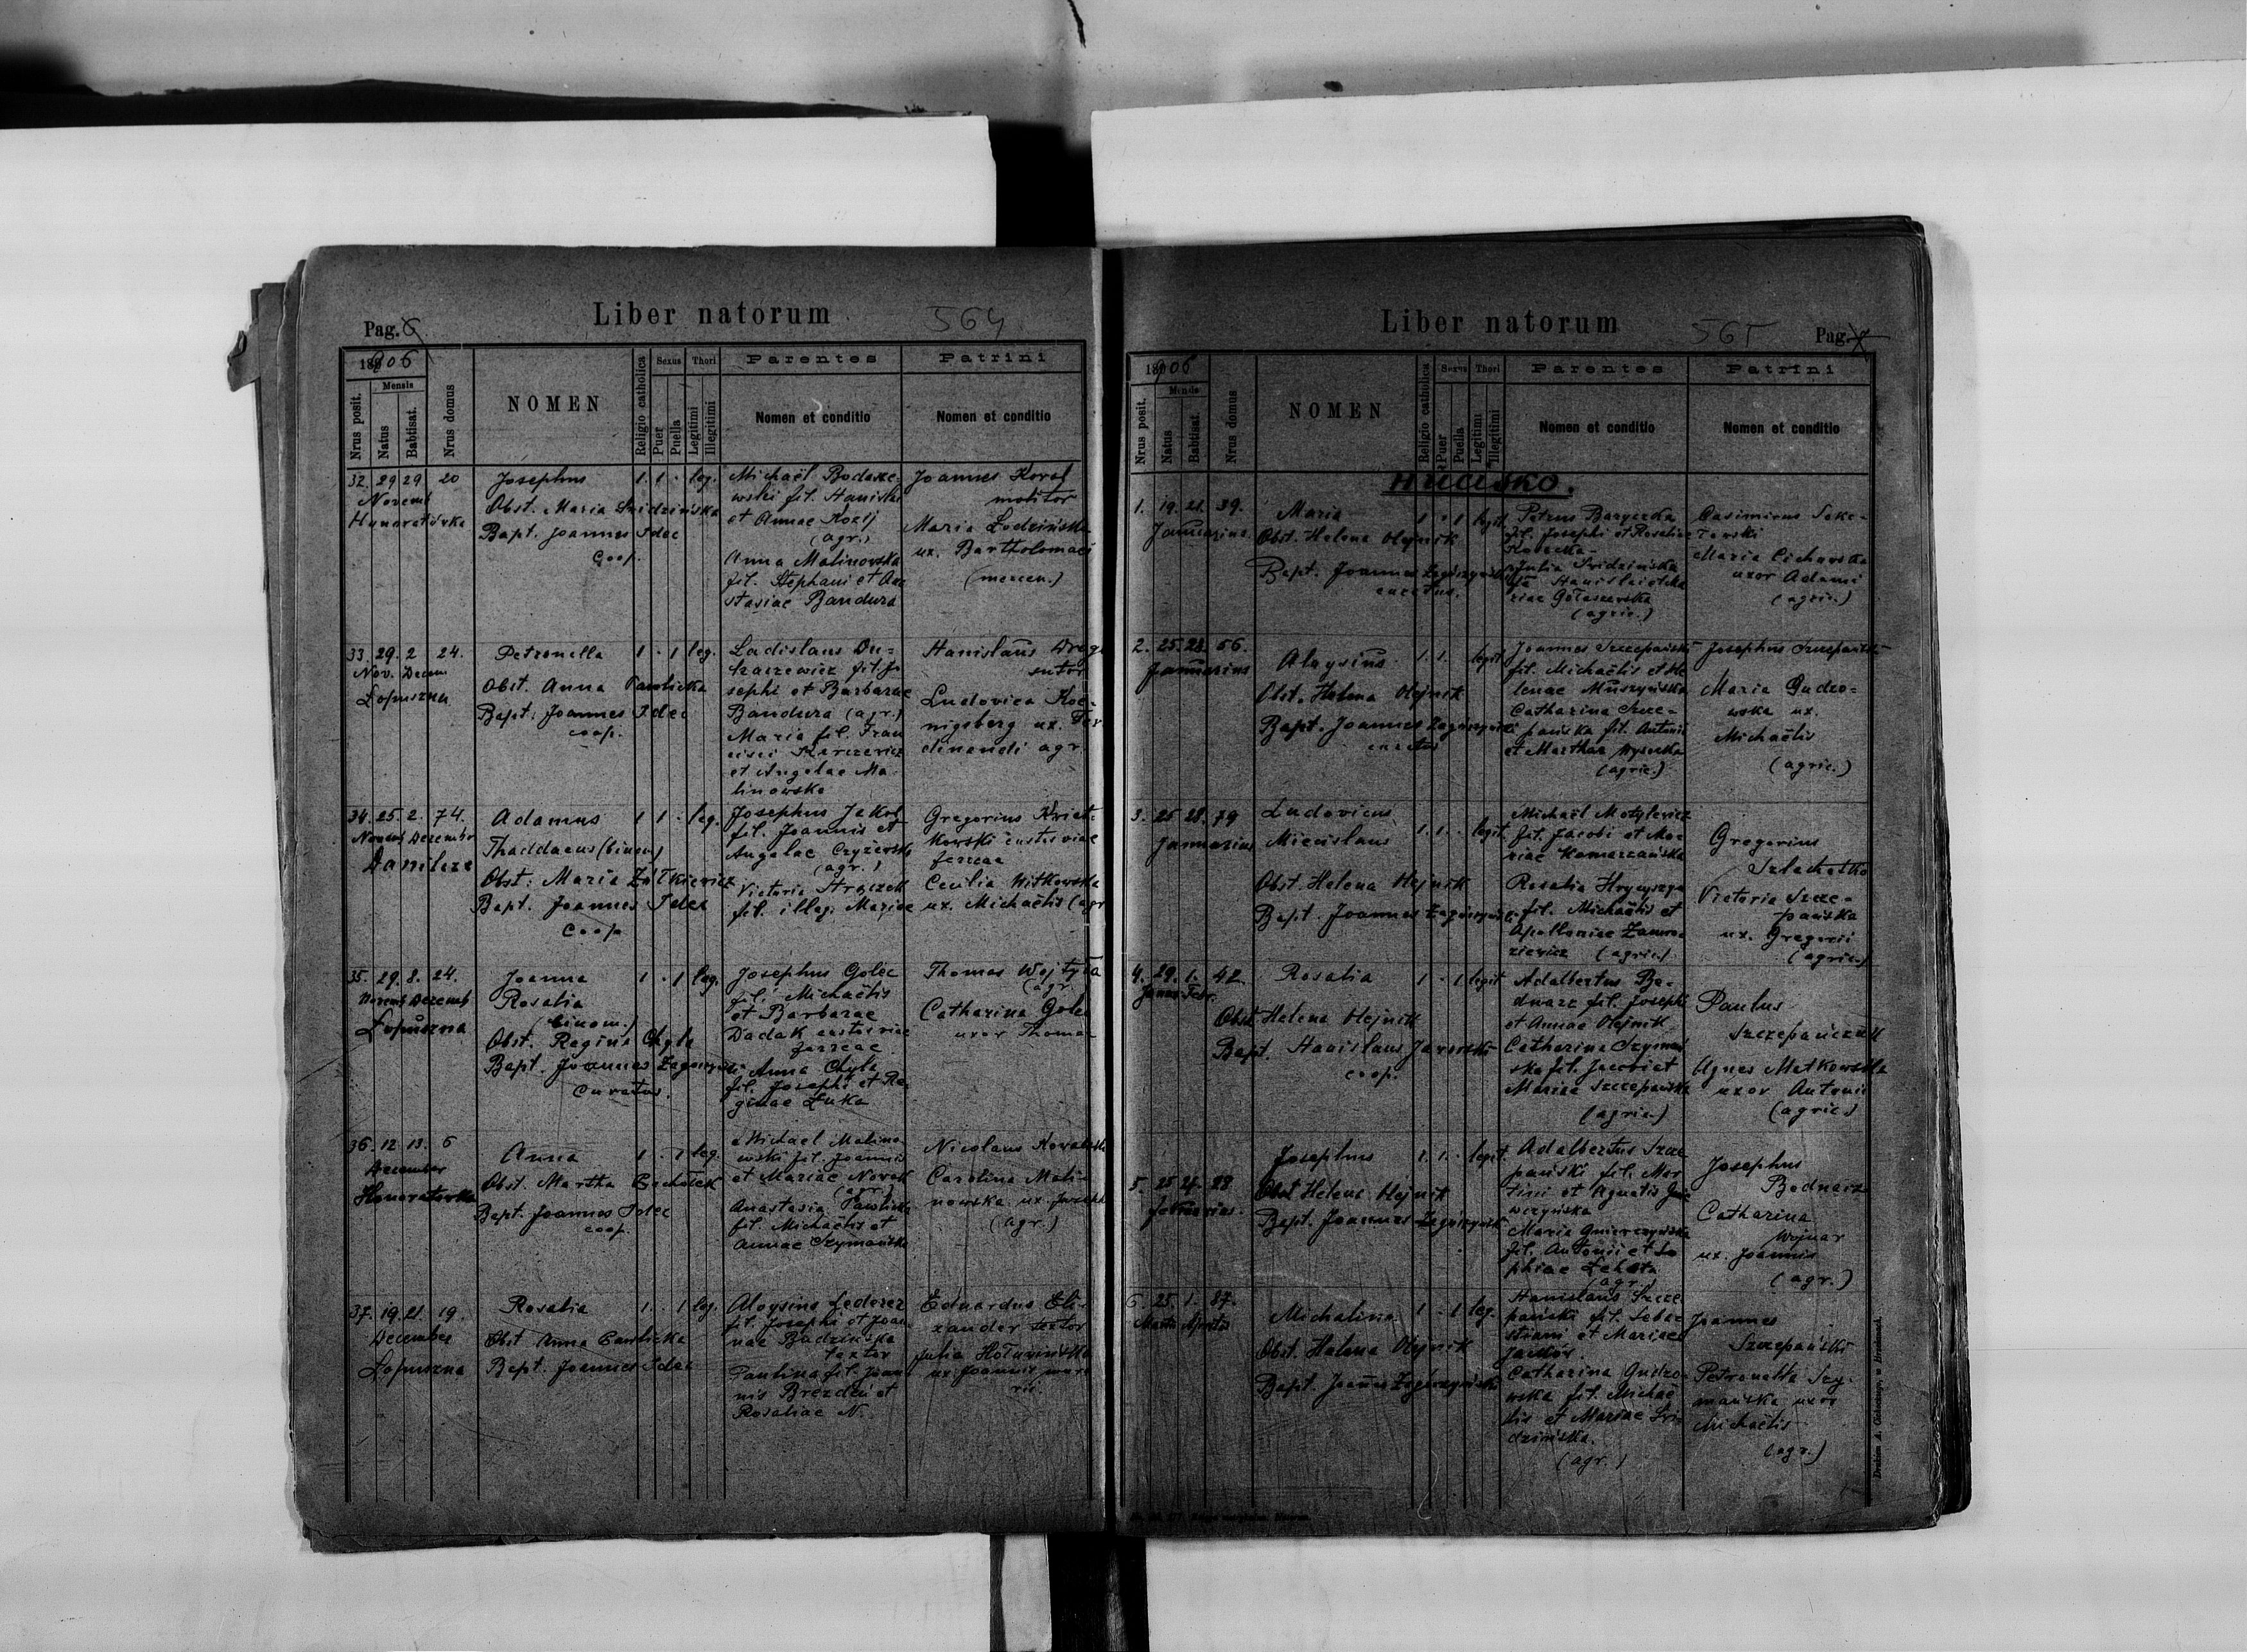 Liber natorum
564
Pag. 6
1906
Mensis
Nrus posit.
Natus
Babtisat.
Nrus domus
NOMEN
Religio catholica
Sexus
Puer
Puella
Thori
Legitimi
Illegitimi
Parentes
Nomen et conditio
Patrini
Nomen et conditio
32. 29 29 20
Novemb
Honoratówka
Josephus
Obst. Maria Svidzińska
Bapt. Joannes Idec
Coop.
1. 1 . leg.
Michaël Bodasze-
wski fil. Stanislai
et Annae Kozij
(agr.)
Anna Malinowska
fil. Stephani et Ana
stasiae Bandura
Joannes Koval
molitor
Maria Lodzińska
ux. Bartholomaei
(mercen.)
33. 29. 2 24.
Nov. Decem
Lopuszna
Petronella
Obst. Anna Pawlicka
Bapt. Joannes Idec
coop.
1 . 1 leg.
Ladislaus Du-
kaczewicz fil. Jo
sephi et Barbarae
Bandura (agr.)
Maria fil. Fran
cisci
et Angelae Ma
linowska
Stanislaus
sutor
Ludovica Koe-
nigsberg ux. Fer
dinandi agr.
34. 25. 2. 74.
Novemb Decembr
Danilcze
Adamus
Thaddaeus (binom)
Obst. Maria Żółkiewicz
Bapt. Joannes Idec
Coop
1 1 . leg.
Josephus Jakel
fil. Joannis et
Angelae Czyżewska
(agr.)
Victoria Strączek
fil. illeg. Mariae
Gregorius Kviat-
kowski custos viae
ferreae
Cecilia Witkowska
ux. Michaëlis (agr
35. 29. 8. 24.
Novemb Decemb
Lopuszna
Joanna
Rosalia
(binom.)
Obst. Regina Chyla
Bapt. Joannes Zagórzyński
Curatus.
1 . 1 leg.
Josephus Golec
fil. Michaëlis
et Barbarae
Dadak custos viae
ferreae
Anna Chyla
fil. Josephi et Re
ginae Łuka
Thomas Wojtyła
(agr.
Catharina Golec
uxor Thomae
36. 12 13. 6
December
Honoratowka
Anna
Obst. Martha
Bapt. Joannes Idec
coop.
1 . 1 leg.
Michael Malino
wski fil. Joannis
et Mariae Novak
(agr.)
Anastasia Pawlicka
fil. Michaëlis et
Annae Szymańska
Nicolaus Kowalski
Carolina Mali-
nowska ux. Josephi
(agr.)
37. 19. 21. 19.
December
Lopuszna
Rosalia
Obst Anna Pawlicka
Bapt. Joannes Idec
1. . 1 leg.
Aloysius Lederer
fil. Josephi et Joan
nae Budzińska
textor
Paulina fil. Joan
nis Brezdeń et
Rosaliae N.
Eduardus
textor
Julia
ux. Joannis
Liber natorum
565
Pag. 7
1906
Mensis
Nrus posit.
Natus
Babtisat.
Nrus domus
NOMEN
Religio catholica
Sexus
Puer
Puella
Thori
Legitimi
Illegitimi
Parentes
Nomen et conditio
Patrini
Nomen et conditio
Hucisko.
1. 19. 21. 39.
Januarius
Maria
Obst. Helena Olejnik
Bapt. Joannes Zagórzyński
curatus.
1 . 1 legit.
Petrus Baryczka
fil. Josephi et Rosaliae
Julia Svidzińska
fil. Stanislai et Ma
riae Gołaszewska
(agric.)
Casimirus
Maria Cichowska
uxor Adami
(agric.)
2. 25. 28. 56.
Januarius
Aloysius
Obst. Helena Olejnik
Bapt. Joannes Zagórzyński
curatus
1. 1. legit.
Joannes Szczepański
fil. Michaëlis et He
lenae Muszyńska
Catharina Szcze-
pańska fil. Antonii
et Marthae Wysocka
(agric.)
Josephus Szczepański
Maria Gudzo-
wska ux.
Michaëlis
(agric.)
3. 25 28. 79
Januarius
Ludovicus
Miecislaus
Obst. Helena Olejnik
Bapt. Joannes Zagórzyński
1. 1. . legit.
Michaël Motylewicz
fil. Jacobi et Ma-
riae Komarzańska
Rosalia Hrycyszyn
fil. Michaëlis et
Apolloniae
(agric.)
Gregorius
Szlachetko
Victoria Szcze-
pańska
ux. Gregorii
(agric.)
4. 29. 1. 42.
Januar Febr.
Rosalia
Obst Helena Olejnik
Bapt. Stanislaus Javorski
coop.
1 . 1 legit
Adalbertus Be-
dnarz fil. Josephi
et Annae Olejnik
Catharina Szymań
ska fil. Jacobi et
Mariae Szczepańska
(agric.)
Paulus
Szczepańczuk
Agnes Matkowska
uxor Antonii
(agric.)
5. 25 27. 28
Februarius.
Josephus
Obst Helena Olejnik
Bapt. Joannes Zagórzyński
1. 1. . legit.
Adalbertus Szcze
pański fil. Mar
tini et Agnetis
Maria
fil. Antonii et So
phiae
(agr.)
Josephus
Bednarz
Catharina
Wojnar
ux. Joannis
(agr.)
6. 25. 1. 87.
Martii Aprilis
Michalina
Obst. Helena Olejnik
Bapt. Joannes Zagórzyński
1 . 1 leg.
Stanislaus Szcze
pański fil. Seba-
stiani et Mariae
Catharina Gudzo-
wska fil. Michaë
lis et Mariae Svi
dzińska.
(agr.)
Joannes
Szczepański
Petronella Szy-
mańska uxor
Michaëlis
(agr.)